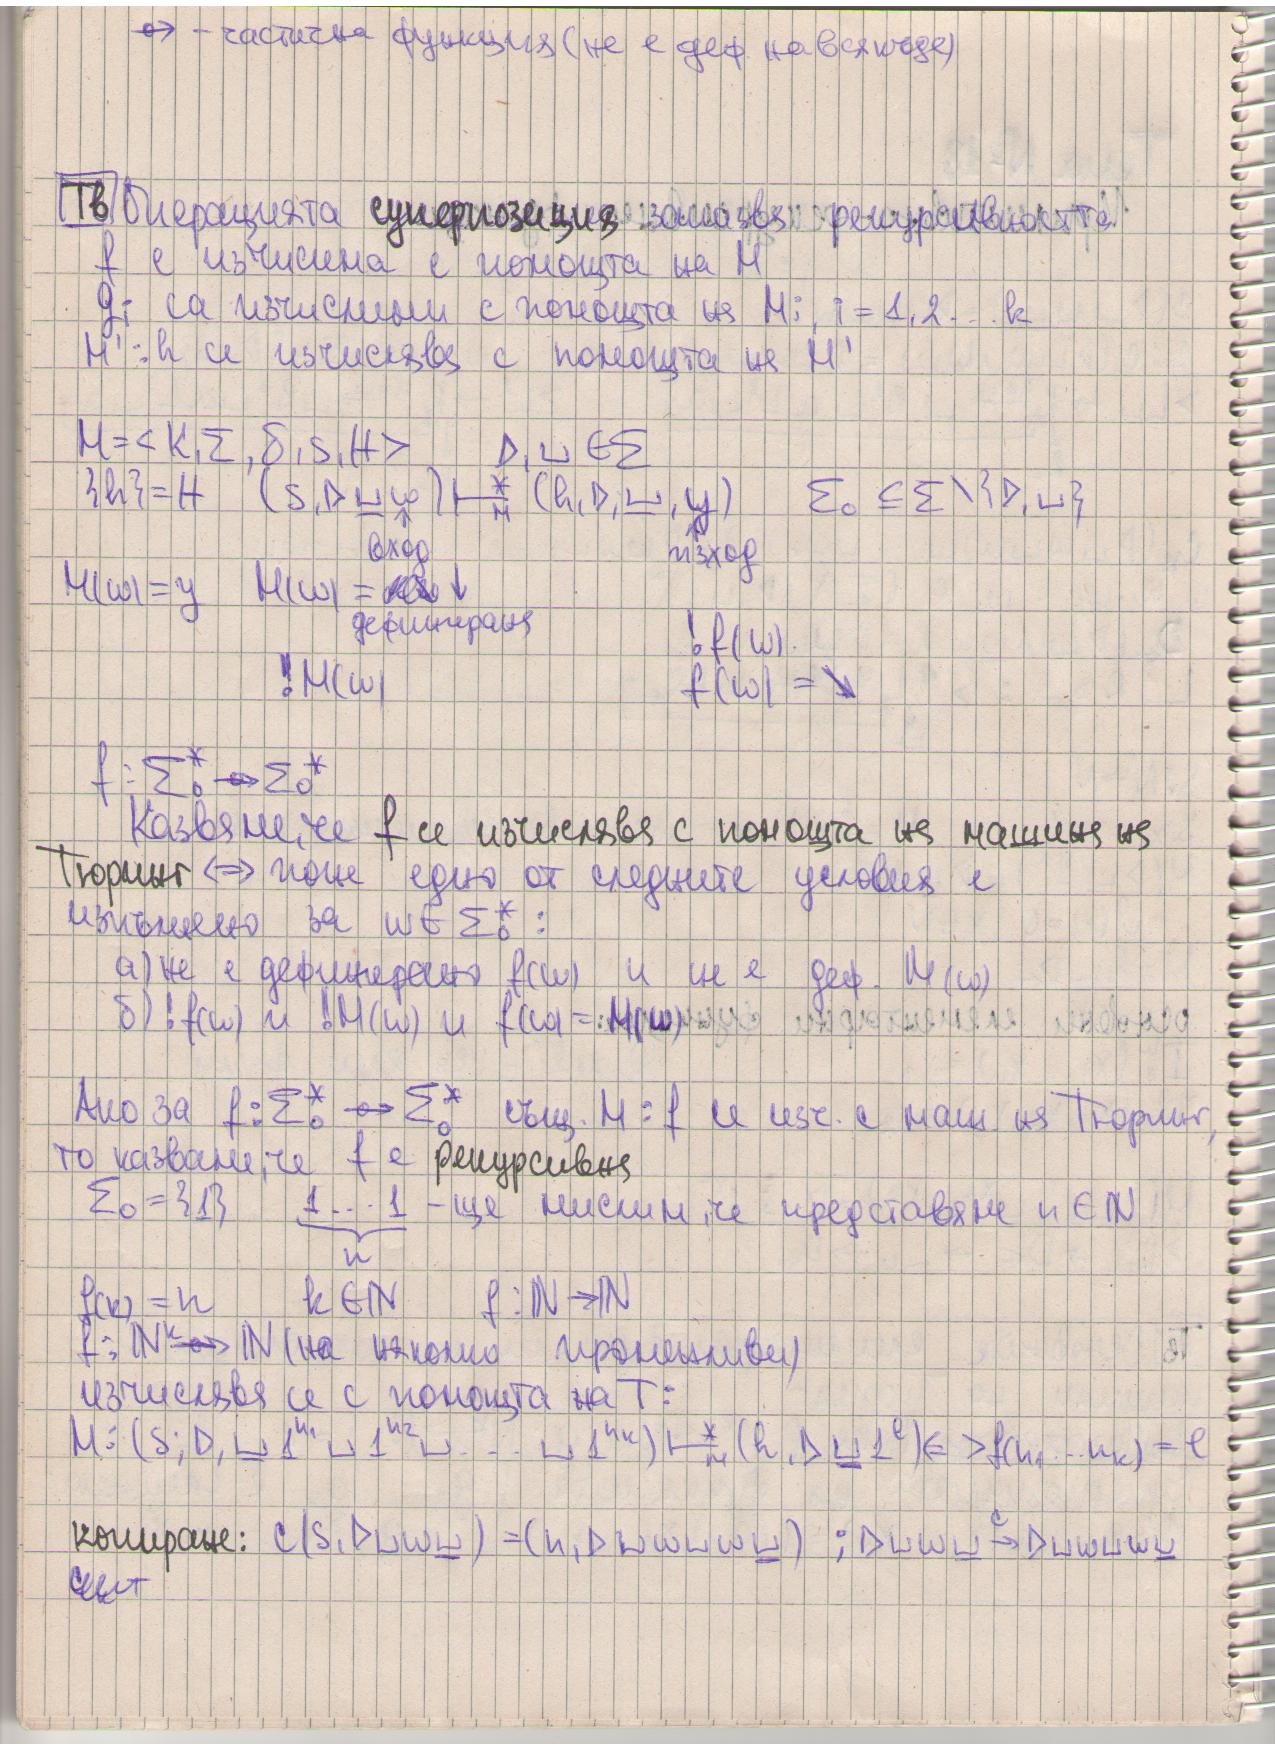 ⇸ - частична функция (не е деф. навсякъде)
Тв Операцията суперпозиция запазва рекурсивността
f е изчислима с помощта на M
gi са изчислими с помощта на Mi, i = 1,2...k
M' : h се изчислява с помощта на M'
M = <K, Σ, δ, s, H> ▷, ⊔ ∈ Σ
{h} = H (s, ▷ ⊔ w) ⊢*M (h, ▷, ⊔, y) Σ₀ ⊆ Σ \ {▷, ⊔}
вход изход
M(w) = y M(w) = ↓
дефинирана
!f(w)
!M(w) f(w) = ↘
f : Σ₀* ⇸ Σ₀*
Казваме, че f се изчислява с помощта на машина на
Тюринг <=> поне едно от следните условия е
изпълнено за w ∈ Σ₀* :
а) не е дефинирано f(w) и не е деф. M(w)
б) !f(w) и !M(w) и f(w) = M(w)
Ако за f : Σ₀* ⇸ Σ₀* същ. M : f се изч. с маш. на Тюринг,
то казваме, че f е рекурсивна
Σ₀ = {1} 1...1 - ще мислим, че представяме n ∈ ℕ
n
f(k) = n k ∈ ℕ f : ℕ → ℕ
f : ℕᵏ ⇸ ℕ (на няколко променливи)
изчислява се с помощта на Т:
M : (s; ▷, ⊔ 1ⁿ¹ ⊔ 1ⁿ² ⊔ ... ⊔ 1ⁿᵏ) ⊢*M (h, ▷ ⊔ 1ˡ) <=> f(n₁...nₖ) = l
копиране: C(s, ▷⊔w⊔) = (h, ▷⊔w⊔w⊔) ; ▷⊔w⊔ →ᶜ ▷⊔w⊔w⊔